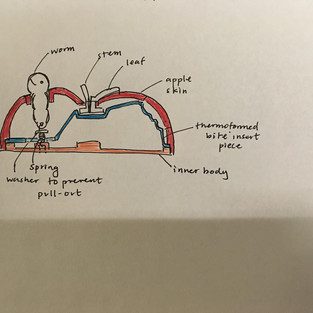 worm
stem
leaf
apple
skin
thermoformed
bite insert
piece
inner body
spring
washer to prevent
pull-out